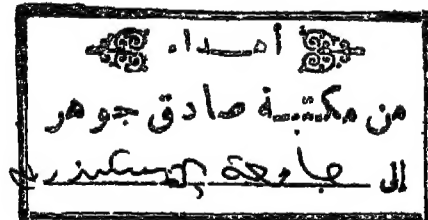 أهداء
من مكتبة صادق جوهر
إلى جامعة إسكندرية